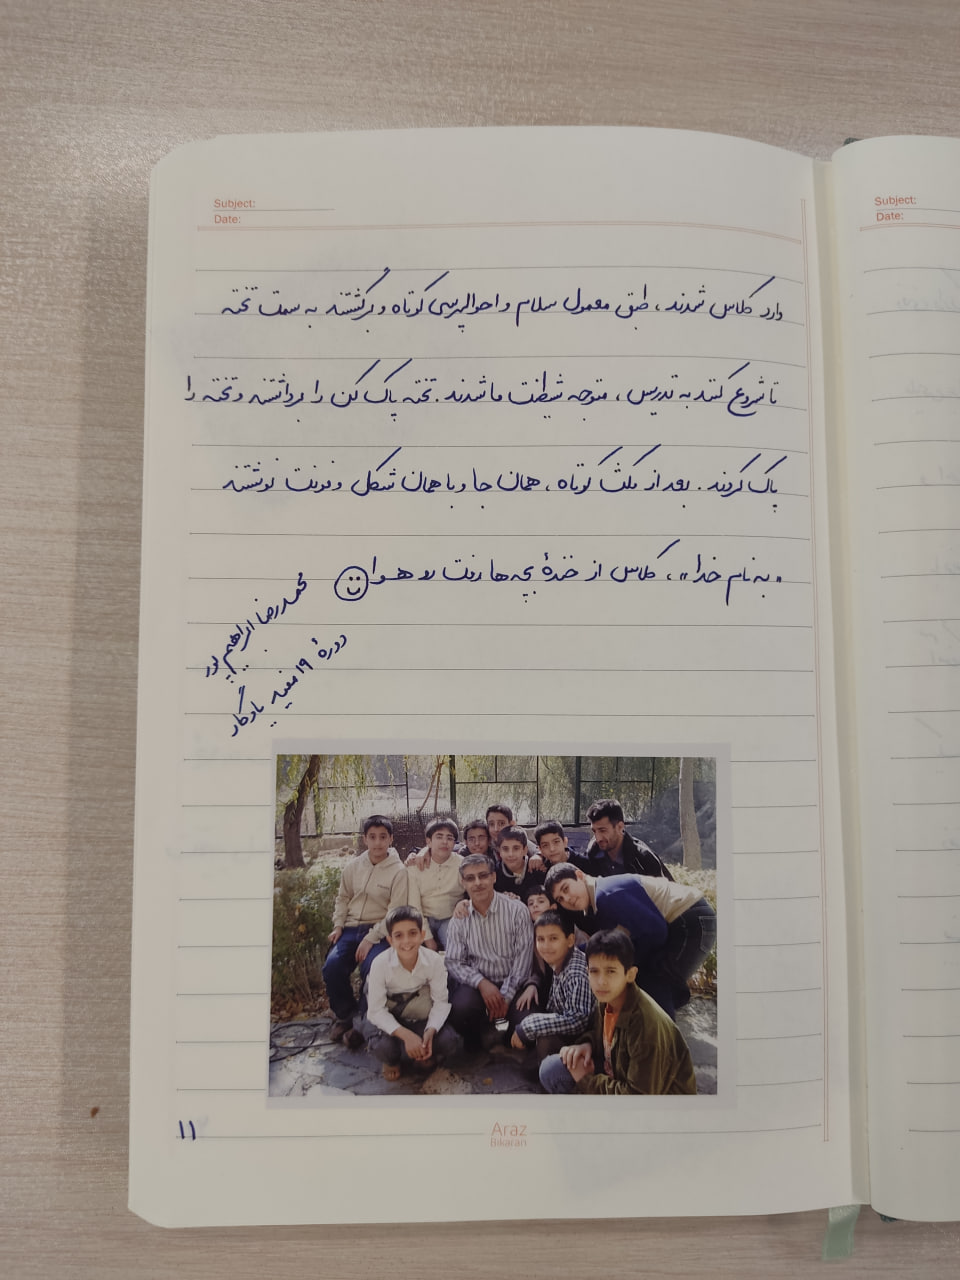 Subject:
Date:
Subject:
Date:
وارد کلاس شدند، طبق معمول سلام و احوالپرسی کوتاه و برگشتند به سمت تخته
تا شروع کنند به تدریس، متوجه شیطنت ما شدند. تخته پاک کن را برداشتند و تخته را
پاک کردند. بعد از مکث کوتاه، همان جا و با همان شکل و فونت نوشتند
«به نام خدا»، کلاس از خندهٔ بچه‌ها رفت رو هوا
محمدرضا ابراهیم پور
دورهٔ ۱۹ مفید یادگار
۱۱
Araz
Bikaran